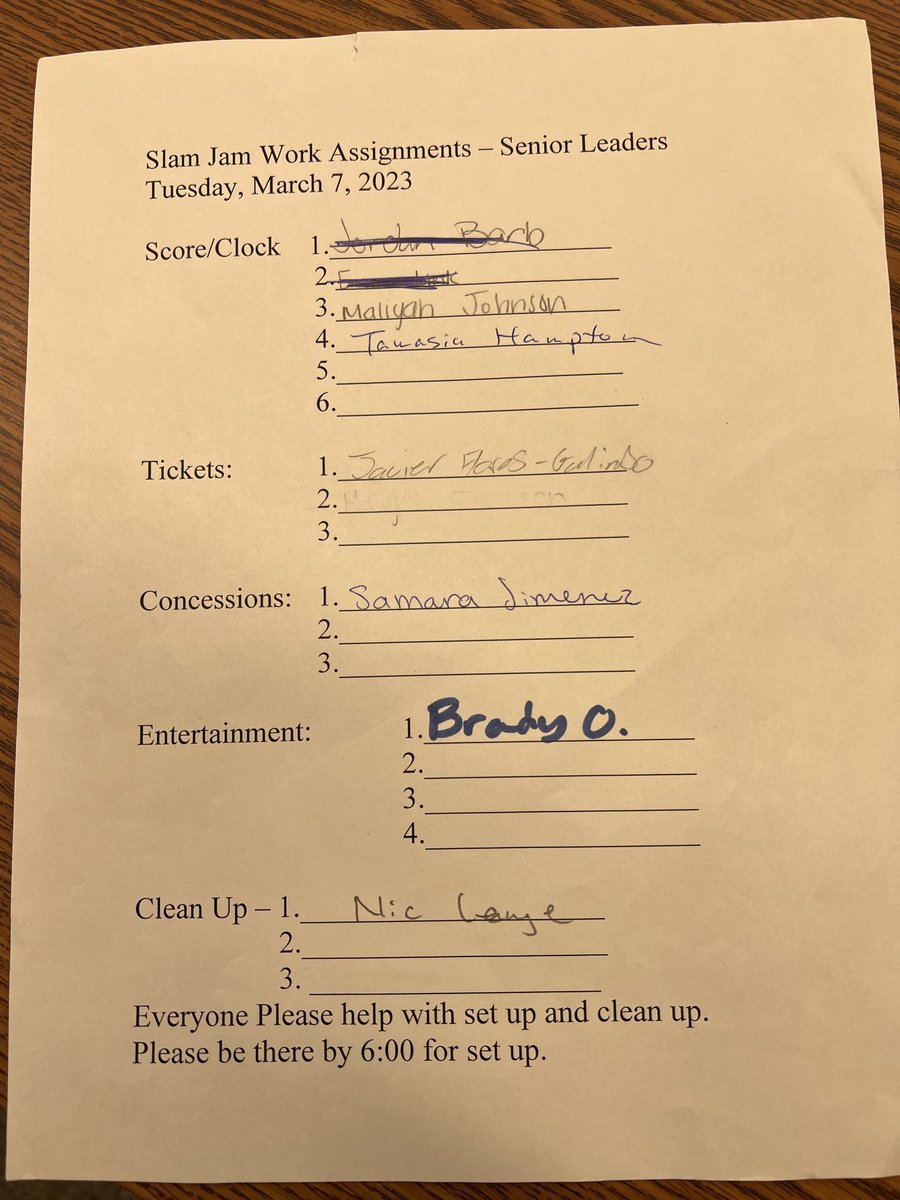 Slam Jam Work Assignments – Senior Leaders
Tuesday, March 7, 2023
Score/Clock 1. Jordan Barb
2.
3. Maliyah Johnson
4. Tamasia Hampton
5.
6.
Tickets: 1. Javier Flores-Galindo
2.
3.
Concessions: 1. Samara Jimenez
2.
3.
Entertainment: 1. Brady O.
2.
3.
4.
Clean Up – 1. Nic Lange
2.
3.
Everyone Please help with set up and clean up.
Please be there by 6:00 for set up.